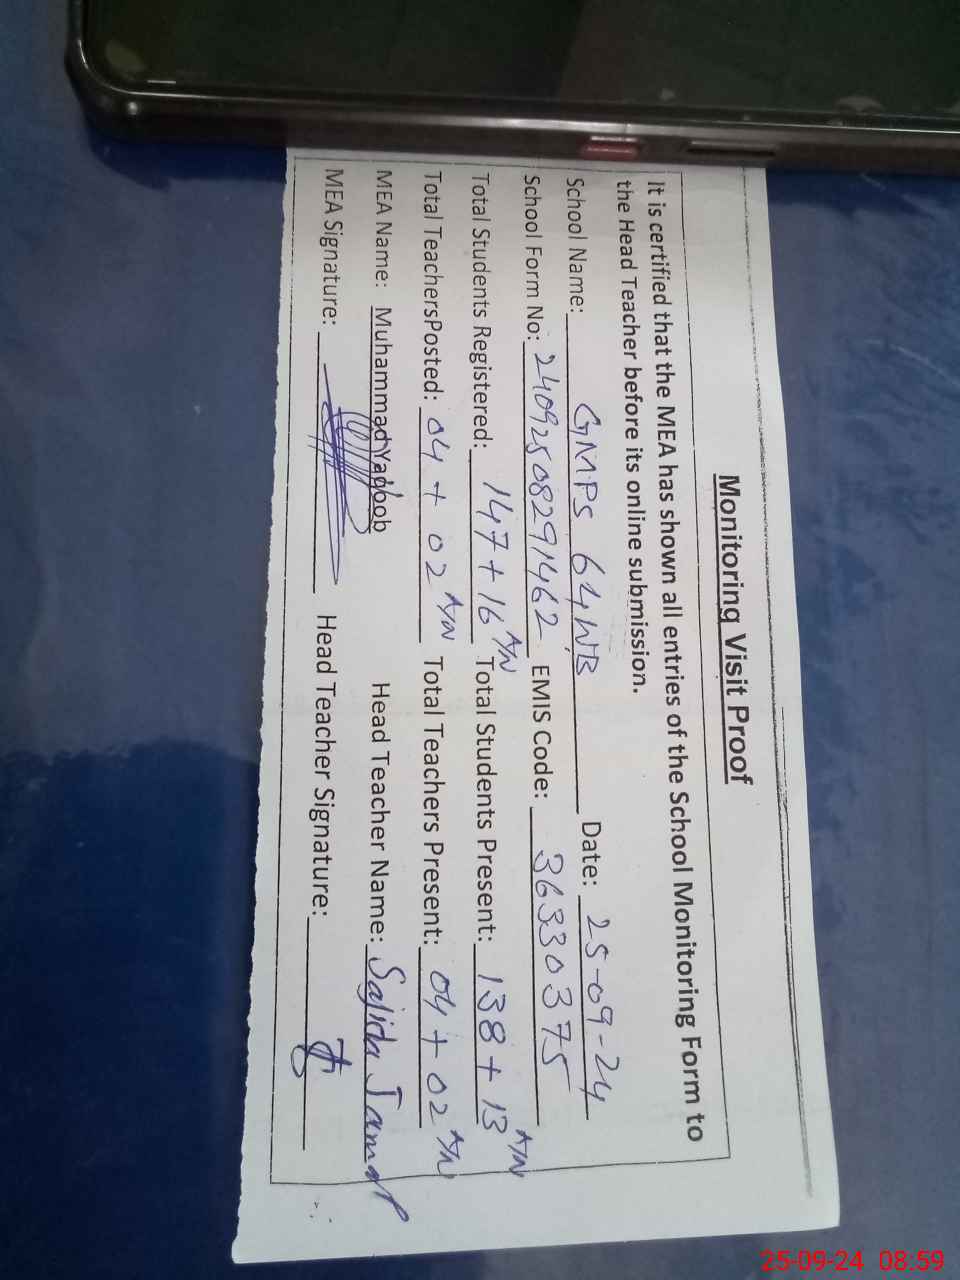 Monitoring Visit Proof
It is certified that the MEA has shown all entries of the School Monitoring Form to
the Head Teacher before its online submission.
School Name: GMPS 64WB Date: 25-09-24
School Form No: 24092508291462 EMIS Code: 36330375
Total Students Registered: 147+16 A/N Total Students Present: 138+13 A/N
Total TeachersPosted: 04+02 A/N Total Teachers Present: 04+02 A/N
MEA Name: Muhammad Yaqoob Head Teacher Name: Sajida Jamal
MEA Signature: Head Teacher Signature:
25-09-24 08:59